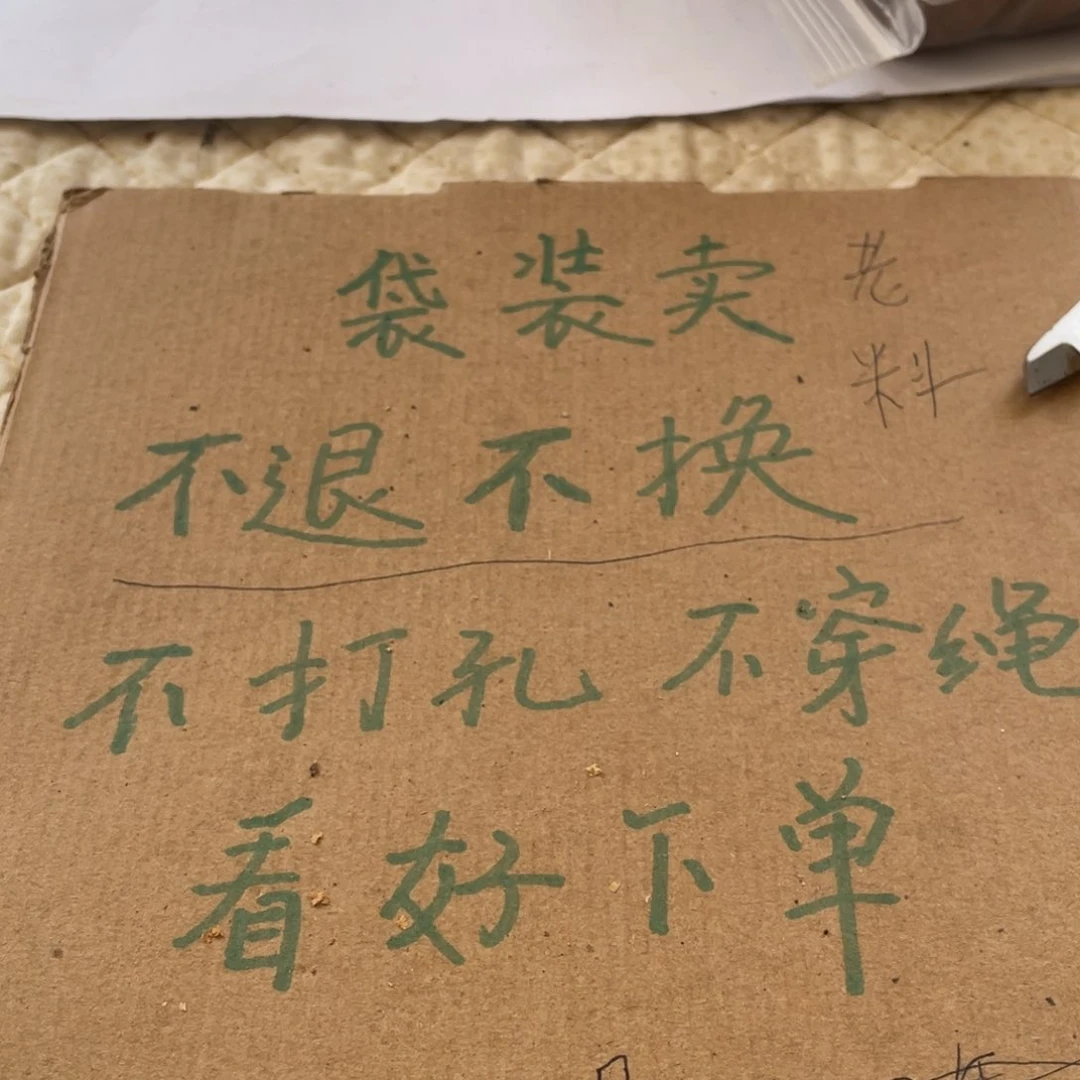 袋装卖
老料
不退不换
不打孔 不穿绳
看好下单